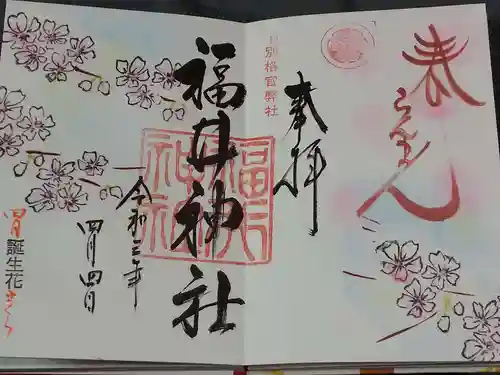 春
らんまん
奉拝
旧別格官幣社
福井神社
福井神社
令和三年
四月四日
四月誕生花さくら